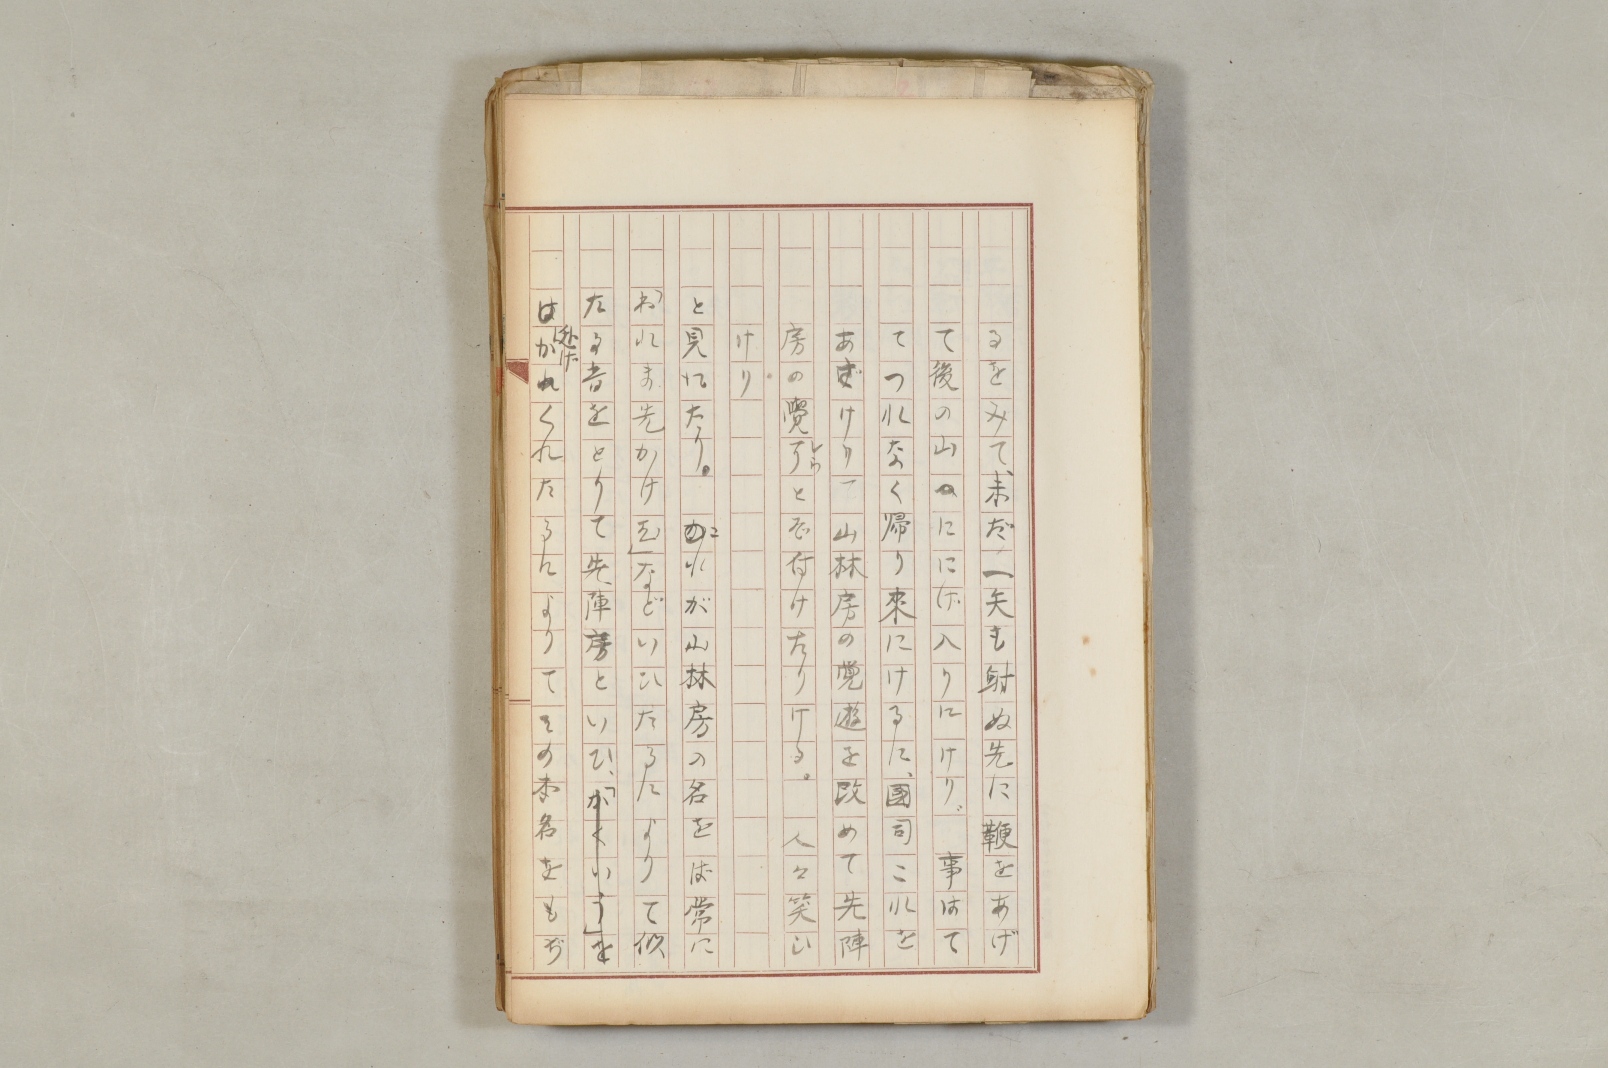 るをみて、未だ一矢も射ぬ先に鞭をあげ
て後の山のににげ入りにけり。事はて
てつれなく帰り來にけるに、國司これを
あざけりて山林房の覺遊を改めて先陣
房の覺了と名付けたりける。人々笑ひ
けり。
と見えたり。これが山林房の名をば常に
「われま先かけむ」などいひたるによりて似
たる者をとりて先陣房といひ、「かくいう」を
はがれくれたるによりてその本名をもぢ